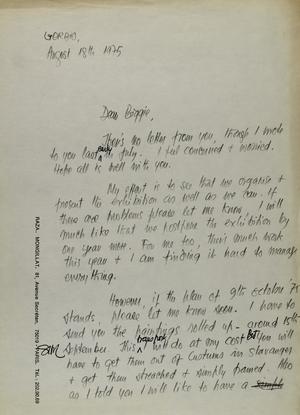 GORBIO,
August 18th 1975
Dear Biggie,
There's no letter from you, though I wrote
to you last early in July. I feel concerned & worried.
Hope all is well with you.
My effort is to see that we organise &
present the exhibition as well as we can. If
there are problems please let me know. I will
much like that we postpone the exhibition by
one year more. For me too, there's much work
this year & I am finding it hard to manage
everything.
However, if the plan of 9th october 75
stands, please let me know soon. I have to
send you the paintings rolled up - around 15th
September. This I will do at any cost BUT you will
have to get them out of customs in Stavanger
& get them streached & simply framed. Also
as I told you I will like to have a
RAZA, MONGILLAT, 81, Avenue Secrétan, 75019 PARIS. Tel.: 202.96.69